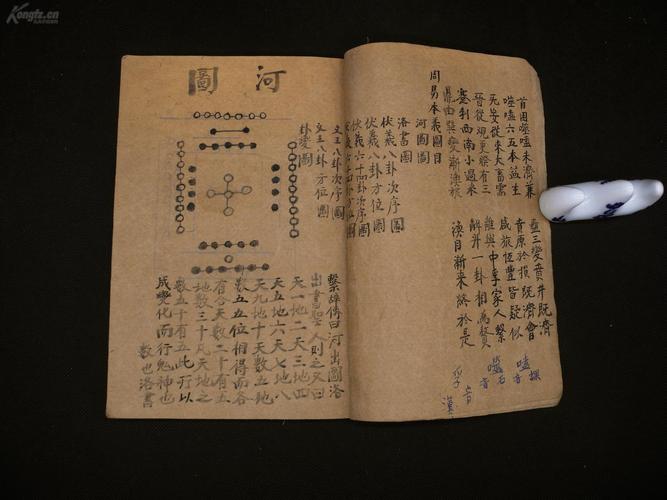 首困噬嗑未濟兼 蠱三變賁井既濟
噬嗑六五本益生 賁原於損既濟會
无妄從來大畜需 咸旅恆豐皆疑似
晉從觀更睽有三 離與中孚家人繫
蹇利西南小過來 解升一卦相為贅
鼎由巽變漸渙旅 渙自漸來終於是
嗑音棵
噬音石
孚音
周易本義圖目
河圖圖
洛書圖
伏羲八卦次序圖
伏羲八卦方位圖
伏羲六十四卦次序圖
文王八卦次序圖
文王八卦方位圖
卦變圖
河圖
繫辭傳曰河出圖洛
出書聖人則之又曰
天一地二天三地四
天五地六天七地八
天九地十天數五地
數五五位相得而各
有合天數二十有五
地數三十凡天地之
數五十有五此所以
成變化而行鬼神也
數也洛書
Kongfz.cn